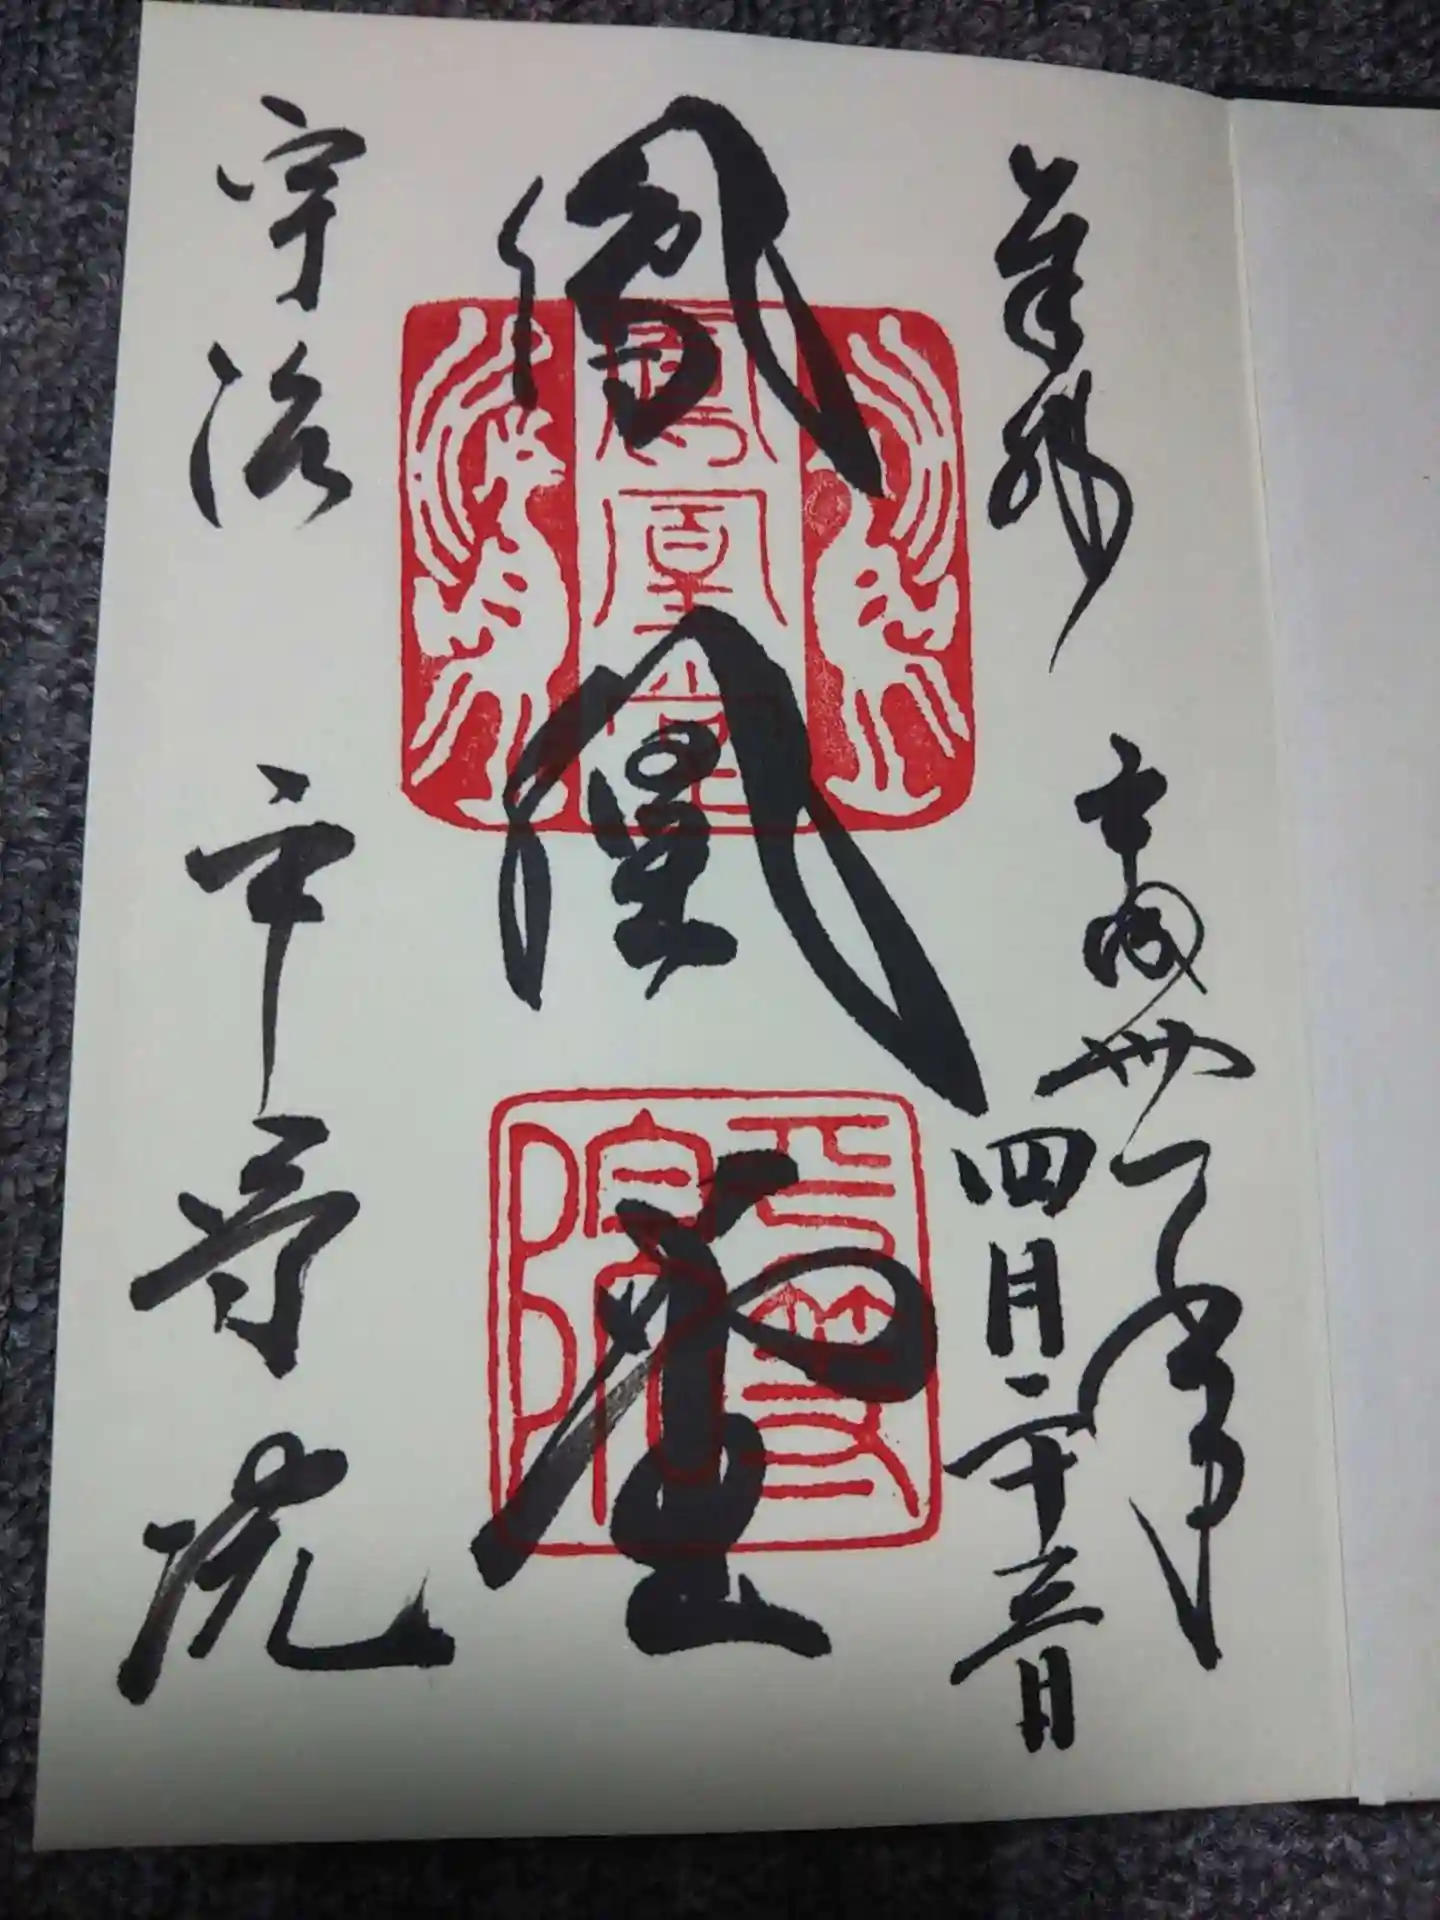 奉拝
平成卅一年
四月二十三日
鳳凰堂
鳳凰堂
平等院
宇治
平等院